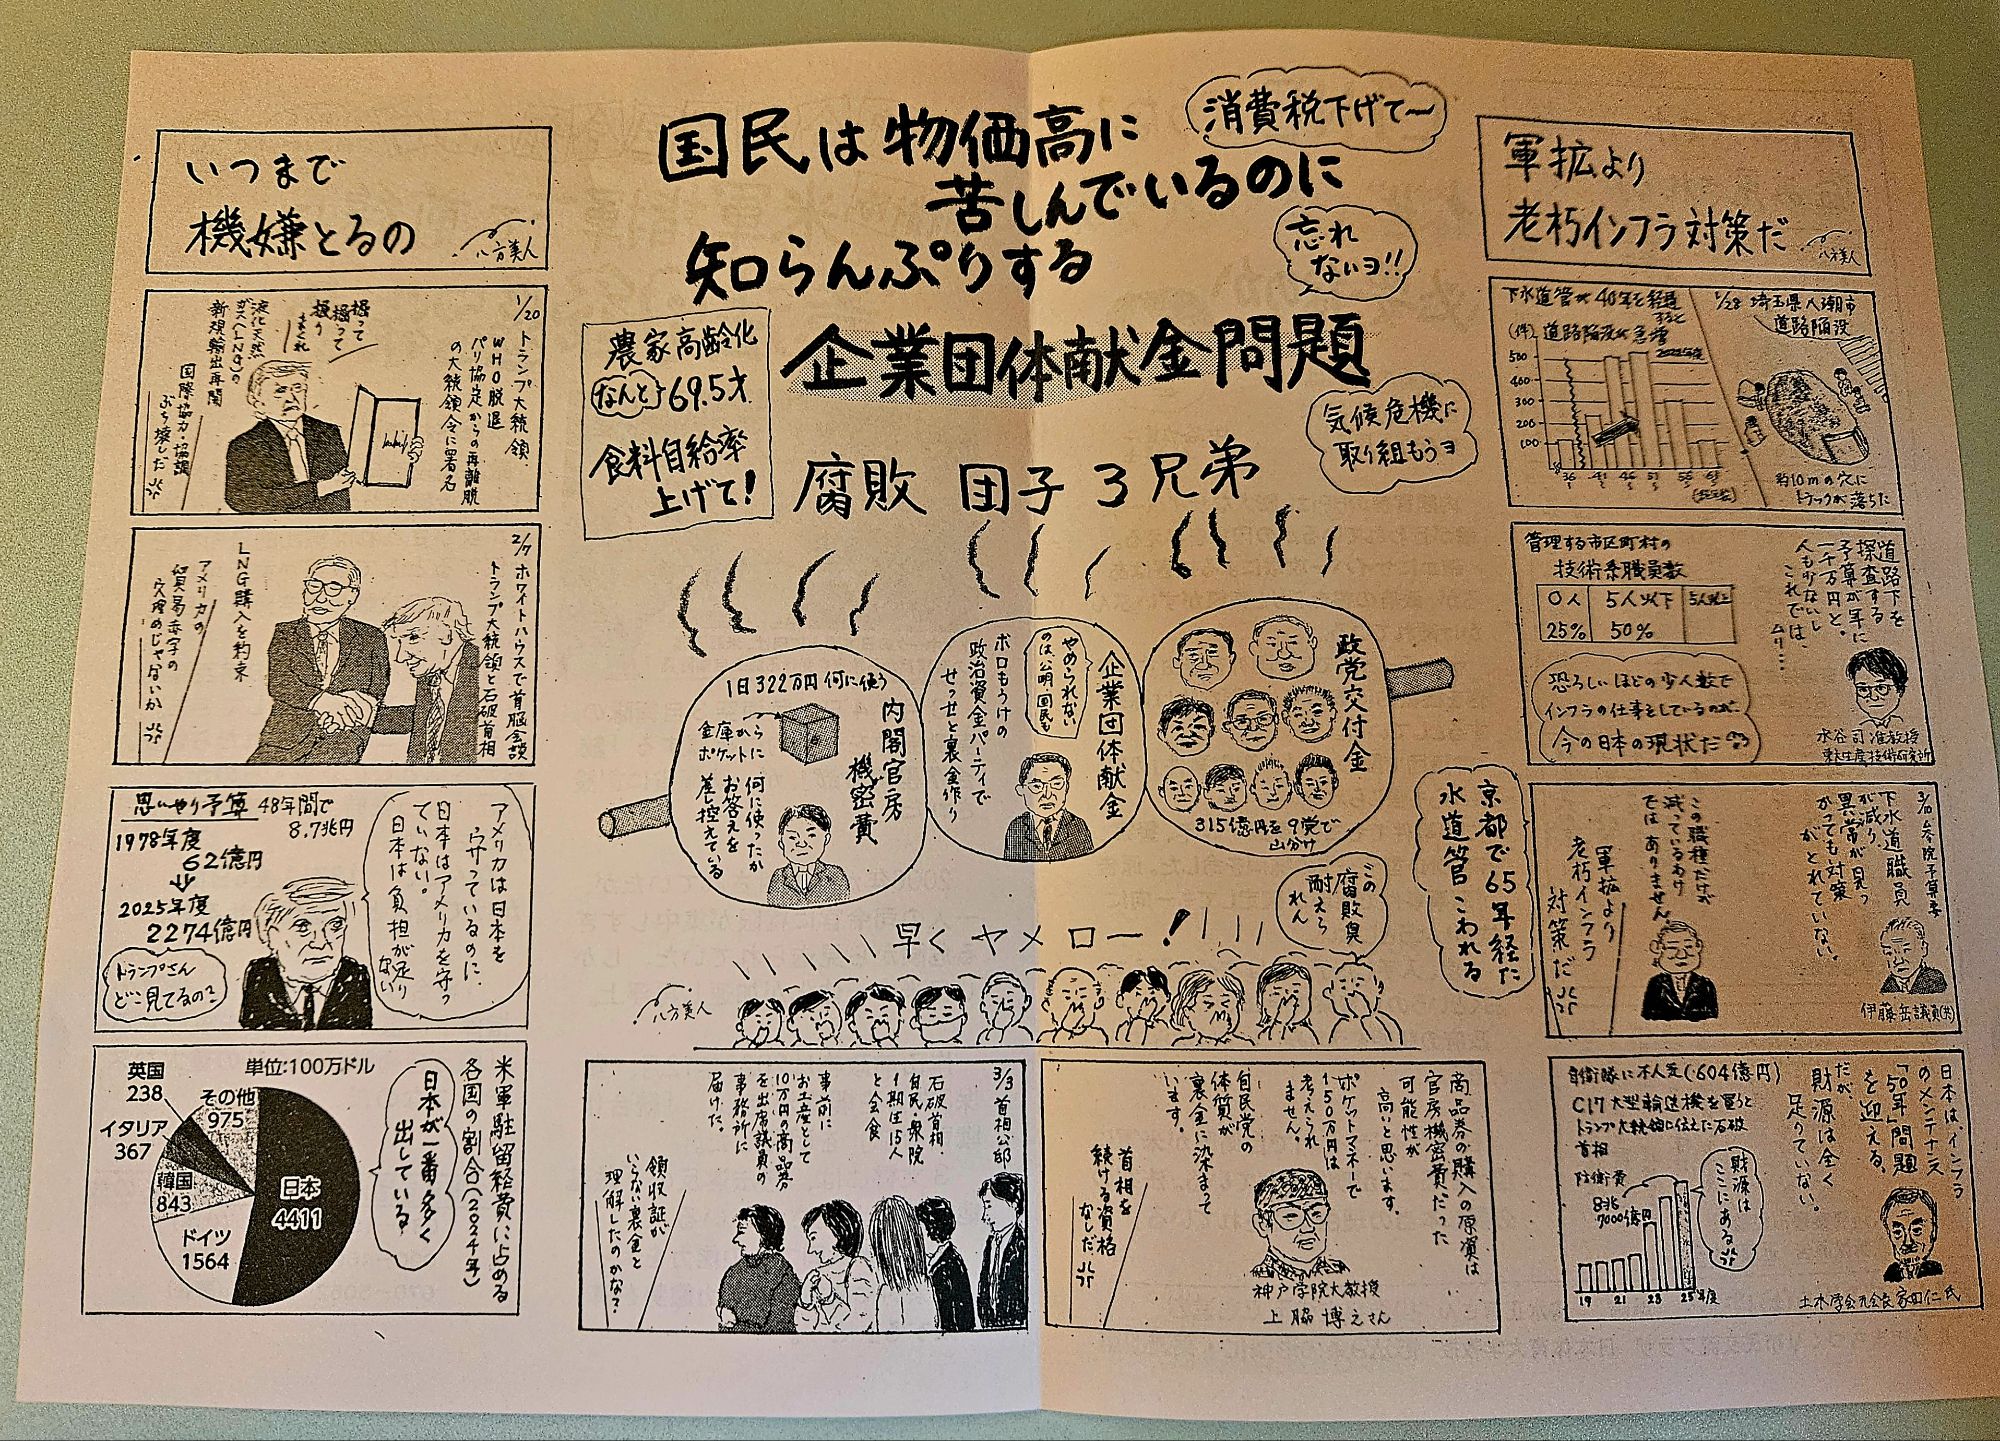 いつまで
機嫌とるの
八方美人
1/20 トランプ大統領、
WHO脱退
パリ協定からの再離脱
の大統領令に署名
掘って
掘って
掘り
まくれ
液化天然
ガス(LNG)の
新規輸出再開
国際協力・協調
ぶち壊しだ
2/7 ホワイトハウスで首脳会談
トランプ大統領と石破首相
LNG購入を約束
アメリカの
貿易赤字の
穴埋めじゃないか
思いやり予算 48年間で
8.7兆円
1978年度
62億円
2025年度
2274億円
トランプさん
どこ見てるの?
アメリカは日本を
守っているのに、
日本はアメリカを守っ
ていない。
日本は負担が足り
ない
米軍駐留経費に占める
各国の割合(2024年)
日本が一番多く
出している
単位:100万ドル
英国
238
その他
975
イタリア
367
韓国
843
ドイツ
1564
日本
4411
国民は物価高に
苦しんでいるのに
知らんぷりする
企業団体献金問題
消費税下げて〜
忘れ
ないヨ!!
気候危機に
取り組もうヨ
農家高齢化
なんと 69.5才
食料自給率
上げて!
腐敗 団子 3兄弟
内閣官房
機密費
1日322万円 何に使う
金庫から
ポケットに
何に使ったか
お答えを
差し控えている
企業団体献金
やめられない
のは、公明、国民も
ボロもうけの
政治資金パーティで
せっせと裏金作り
政党交付金
315億円を9党で
山分け
京都で65年経た
水道管こわれる
この
腐敗臭
耐えら
れん
早くヤメロー!
八方美人
3/3 首相公邸
石破首相、
自民・衆院
1期生15人
と会食
事前に
お土産として
10万円の商品券
を出席議員の
事務所に
届けた。
領収証が
いらない裏金と
理解したのかな?
商品券の購入の原資は
官房機密費だった
可能性が
高いと思います。
ポケットマネーで
150万円は
考えられ
ません。
自民党の
体質が
裏金に染まって
います。
首相を
続ける資格
なしだ
神戸学院大教授
上脇博之さん
軍拡より
老朽インフラ対策だ
八方美人
下水道管が40年を経過
すると
(件) 道路陥没が急増
2022年度
500
400
300
200
100
1/28 埼玉県八潮市
道路陥没
約10mの穴に
トラックが落ちた
管理する市区町村の
技術系職員数
0人 5人以下 5人以上
25% 50%
道路下を
探査する
予算が年に
一千万円と。
人も少ないし
これでは、
ムリ…
恐ろしいほどの少人数で
インフラの仕事をしているのが
今の日本の現状だ
水谷司准教授
東大生産技術研究所
3/10 参院予算委
下水道職員
が減り、
異常が見つ
かっても対策
がとれていない。
伊藤岳議員(共)
この職種だけが
減っているわけ
ではありません
軍拡より
老朽インフラ
対策だ
日本は、インフラ
のメンテナンス
「50年」問題
を迎える。
だが、
財源は全く
足りていない。
土木学会元会長 家田仁氏
自衛隊に不人気(604億円)
C17大型輸送機を買うと
トランプ大統領に伝えた石破
首相
防衛費
8兆
7000億円
財源は
ここにある
19 21 23 25年度